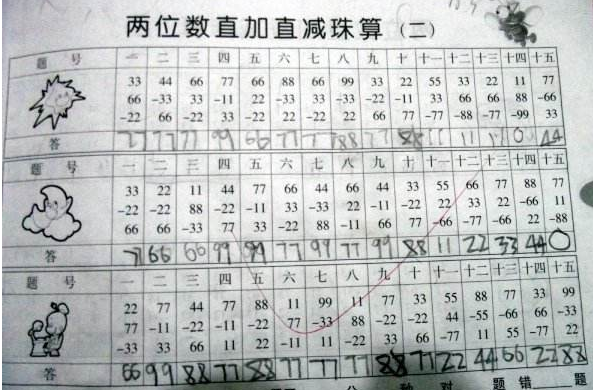 两位数直加直减珠算（二）
题 号 一 二 三 四 五 六 七 八 九 十 十一 十二 十三 十四 十五
33 44 66 77 66 88 66 99 33 22 55 33 22 11 77
66 -33 -33 -11 22 -33 33 -33 -22 -11 33 66 66 88 -66
-22 66 -22 33 -22 22 -22 22 66 77 -77 -88 -77 -99 33
答 77 77 11 99 66 77 77 88 77 88 11 11 11 0 44
题 号 一 二 三 四 五 六 七 八 九 十 十一 十二 十三 十四 十五
33 22 11 44 77 66 44 66 44 33 55 66 77 88 77
-22 -22 88 -22 -11 33 -33 22 -11 -22 22 33 22 -66 11
66 66 -33 77 33 -22 88 -11 66 77 -66 -77 -66 22 -88
答 77 66 66 99 99 77 99 77 99 88 11 22 33 44 0
题 号 一 二 三 四 五 六 七 八 九 十 十一 十二 十三 十四 十五
22 77 44 77 88 11 99 11 77 33 55 88 77 33 99
77 -11 -22 -11 -22 77 -33 88 -22 -22 44 -55 -66 66 -33
-33 33 66 11 22 -11 11 -22 33 66 -77 11 55 -77 22
答 66 99 88 77 88 77 77 77 88 77 22 44 66 22 88
分 秒 对 题 错 题